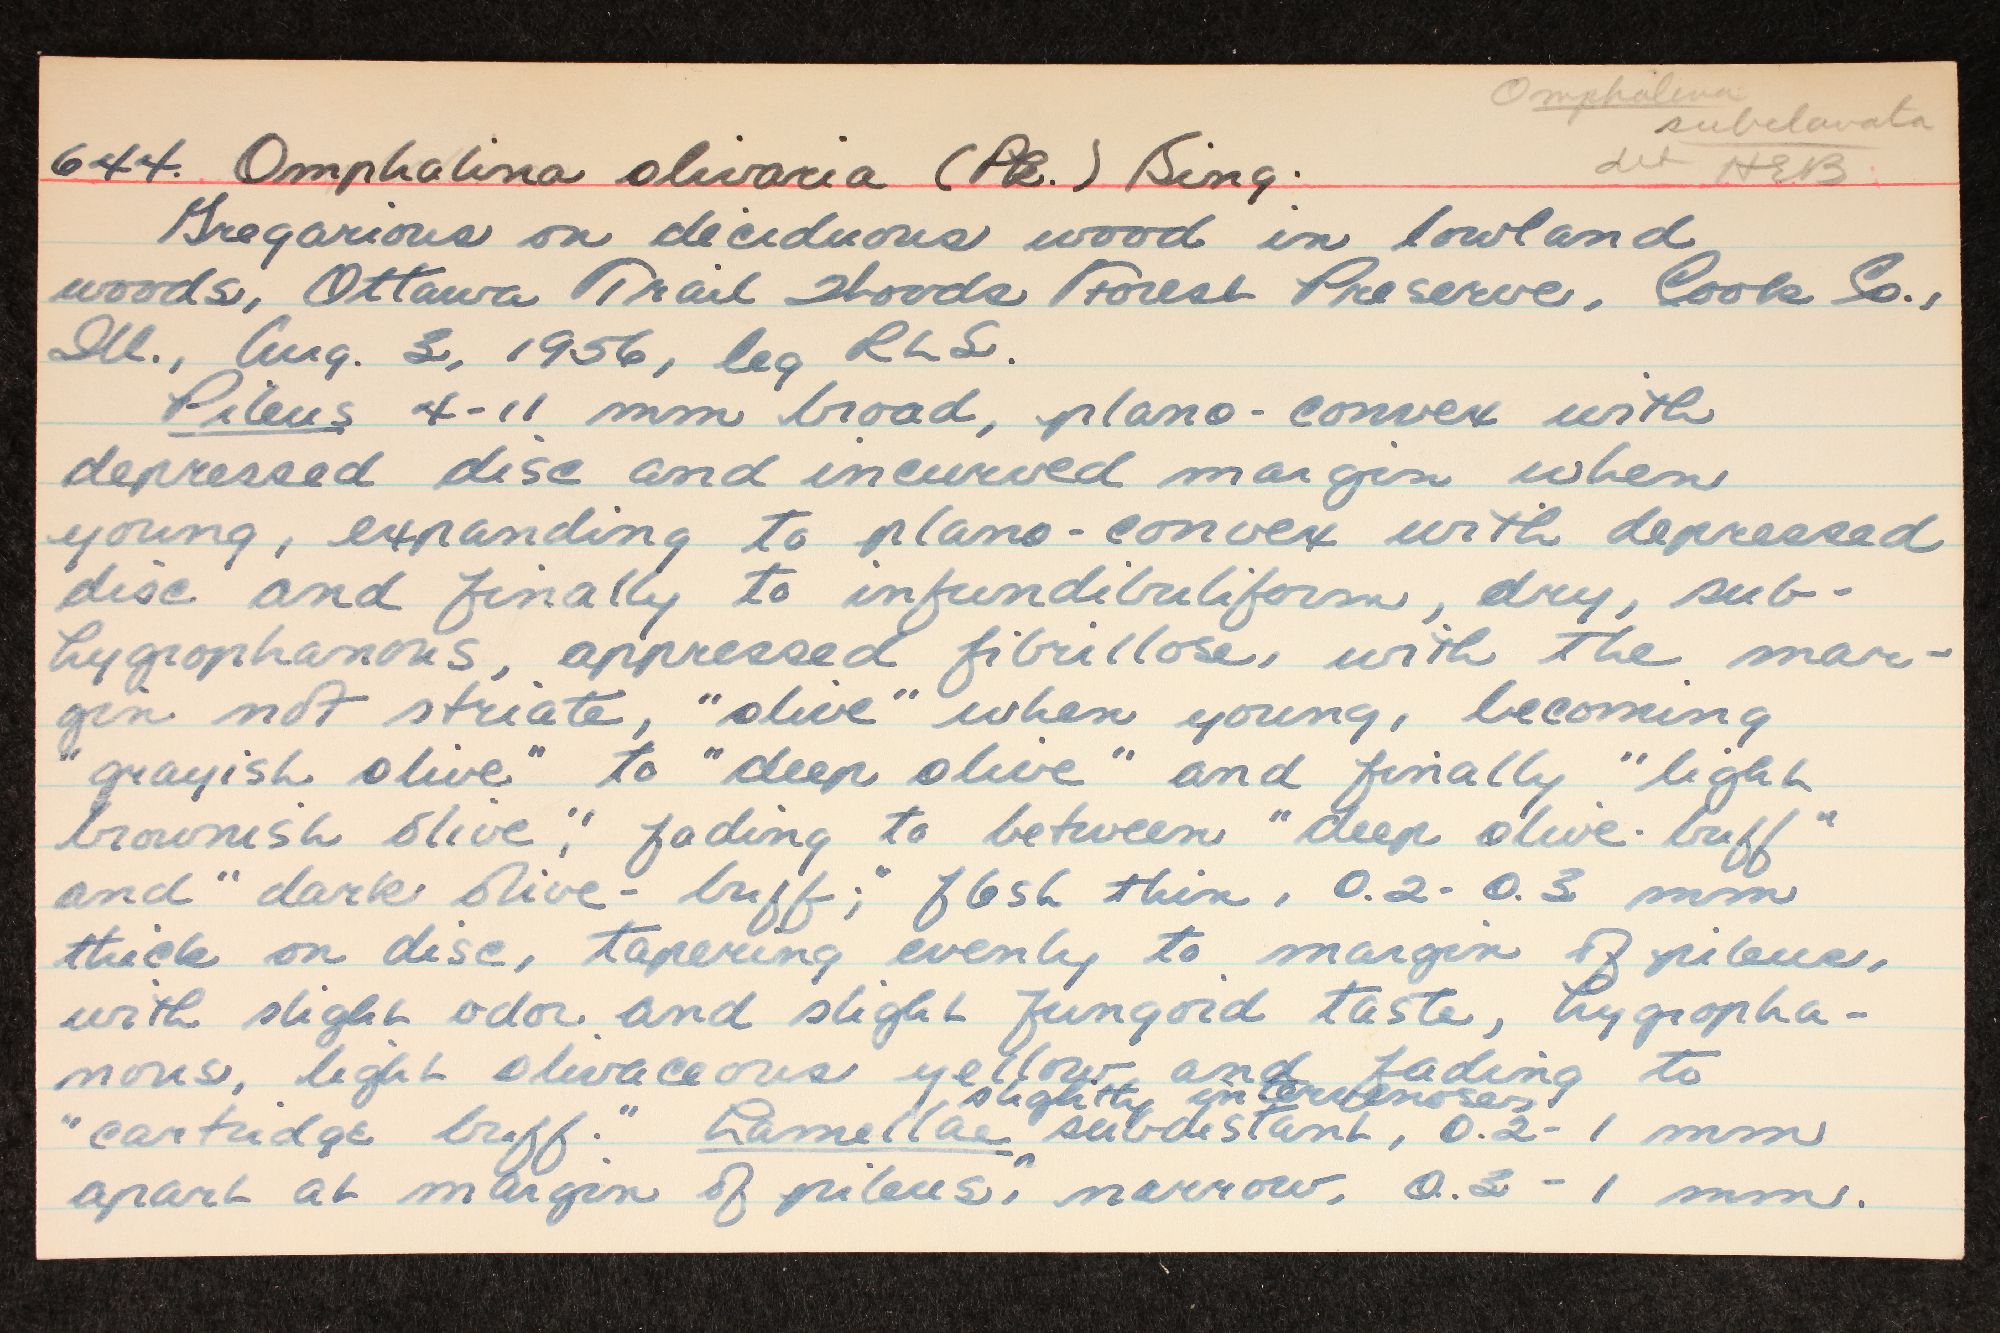 Omphalina
subclavata
det HEB
644. Omphalina olivaria (Pk.) Sing.
Gregarious on deciduous wood in lowland
woods, Ottawa Trail Woods Forest Preserve, Cook Co.,
Ill., Aug. 3, 1956, leg RLS.
Pileus 4-11 mm broad, plano-convex with
depressed disc and incurved margin when
young, expanding to plano-convex with depressed
disc and finally to infundibuliform, dry, sub-
hygrophanous, appressed fibrillose, with the mar-
gin not striate, "olive" when young, becoming
"grayish olive" to "deep olive" and finally "light
brownish olive", fading to between "deep olive-buff"
and "dark olive-buff;" flesh thin, 0.2-0.3 mm
thick on disc, tapering evenly to margin of pileus,
with slight odor and slight fungoid taste, hygropha-
nous, light olivaceous yellow and fading to
slightly intervenose,
"cartridge buff." Lamellae subdistant, 0.2-1 mm
apart at margin of pileus,^ narrow, 0.3-1 mm.